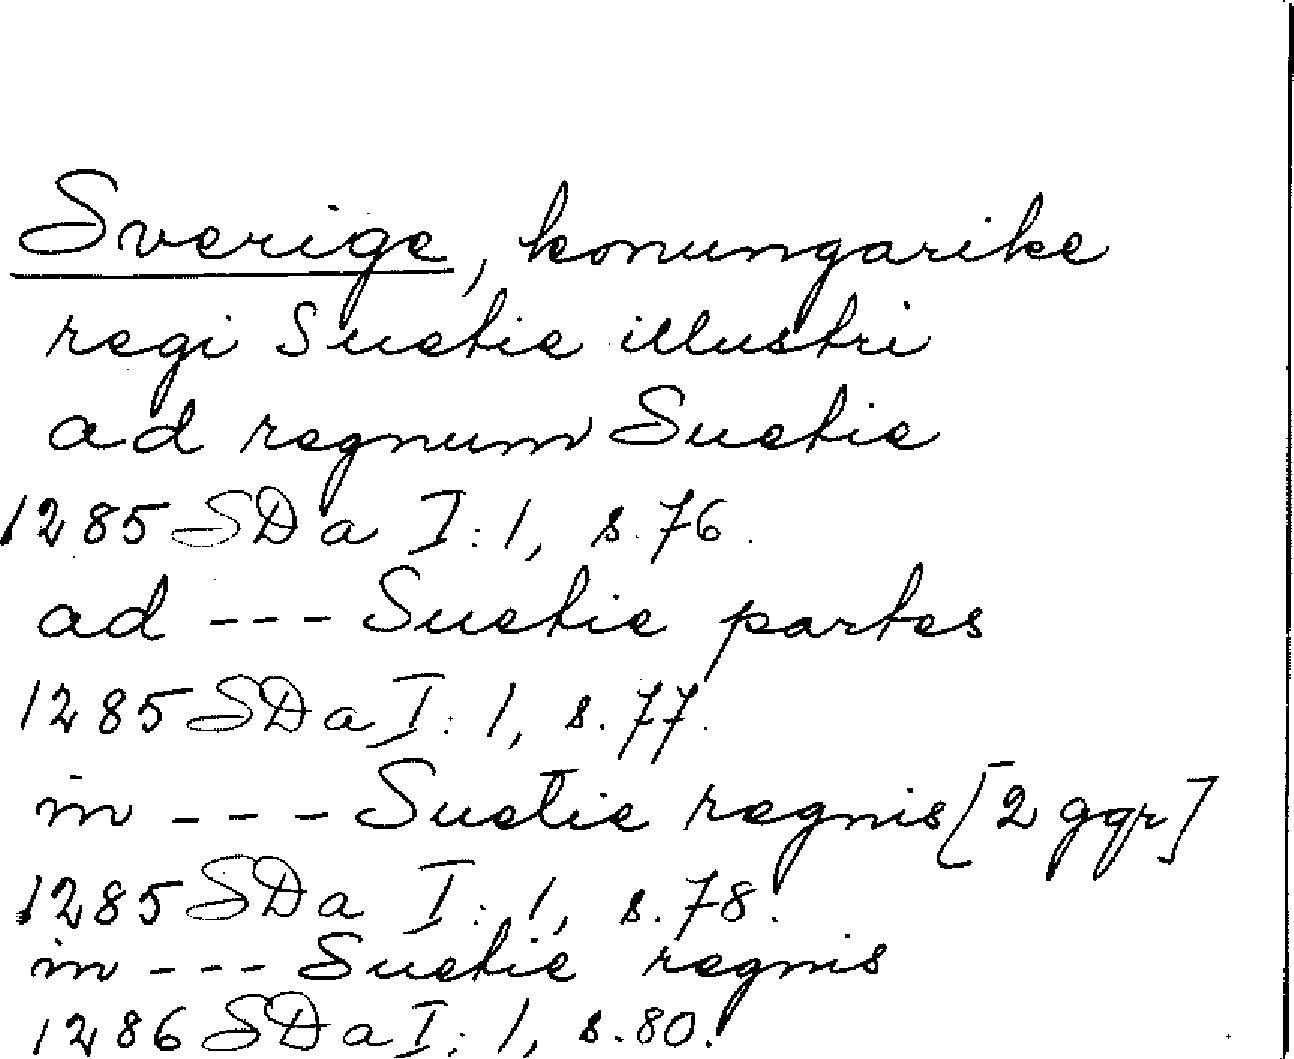 Sverige, konungarike
regi Suetie illustri
ad regnum Suetie
1285 SDa I:1, s.76.
ad --- Suetie partes
1285 SDa I:1, s.77.
in --- Suetie regnis [2 ggr]
1285 SDa I:1, s.78.
in --- Suetie regnis
1286 SDa I:1, s.80.